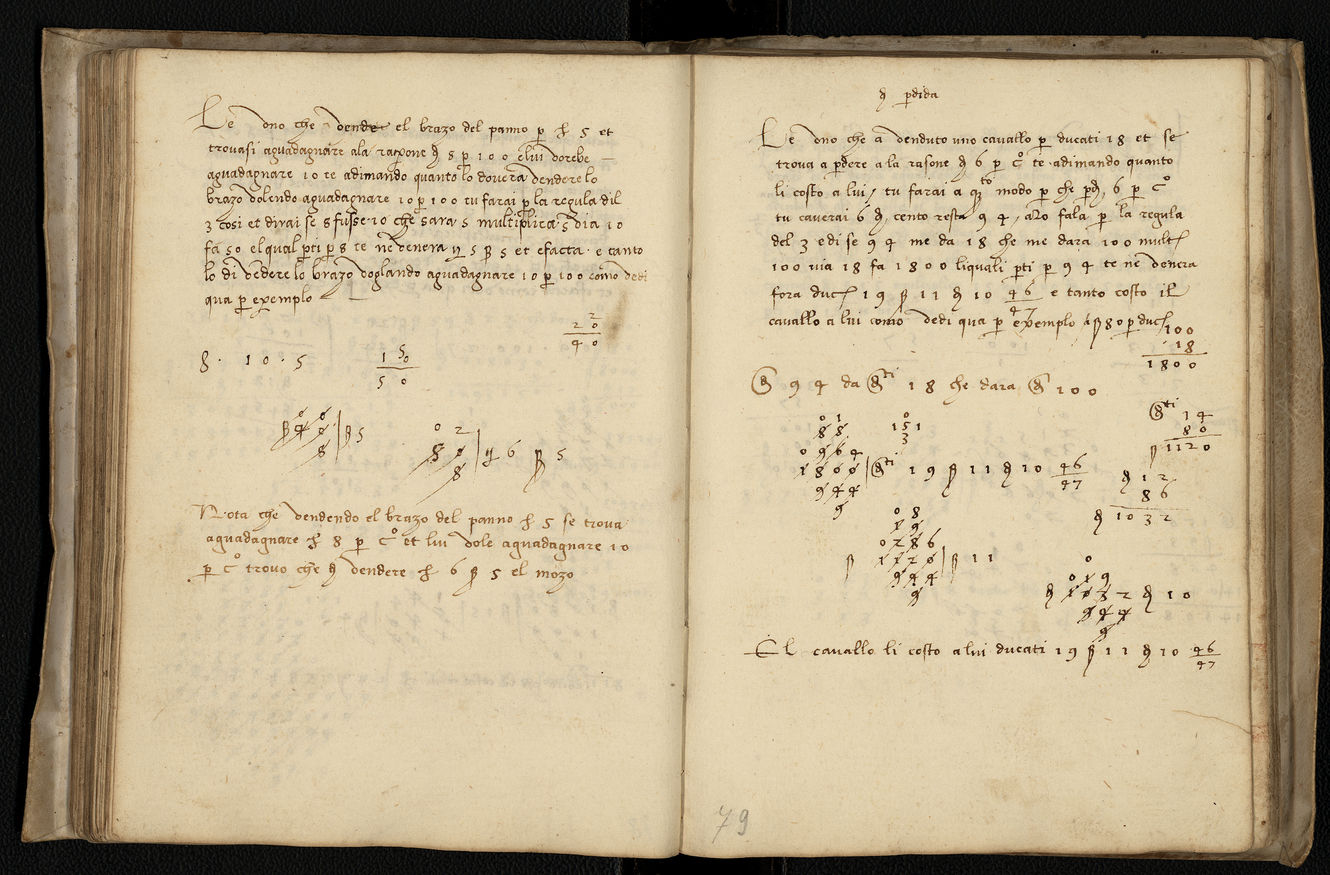 Le uno che vende el brazo del panno p £ 5 et
trovasi aguadagnare ala raxone d 8 p 100 elui vorebe
aguadagnare 10 te adimando quanto lo dovera vendere lo
brazo volendo aguadagnare 10 p 100 tu farai p la regula dil
3 cosi et dirai se 8 fusse 10 che sara 5 multiplica 5 via 10
fa 50 el qual pti p 8 te ne venera 5 et efacta e tanto
lo di vedere lo brazo voglando aguadagnare 10 p 100 como vedi
qua p exemplo
20
2
40
8 · 10 · 5
50
1
50
ß 5
0 2
6 ß 5
Nota che vendendo el brazo del panno £ 5 se trova
aguadagnare £ 8 p cº et lui vole aguadagnare 10
p cº trovo che d vendere £ 6 ß 5 el mozo
d pdida
Le uno che a venduto uno cavallo p ducati 18 et se
trova a pdere a la rasone d 6 p cº te adimando quanto
li costo a lui / tu farai a qto modo p che pd 6 p cº
tu caverai 6 d cento resta 94 / azo fala p la regula
del 3 e di se 94 me da 18 che me dara 100 mult
100 via 18 fa 1800 li quali pti p 94 te ne venera
fora duc 19 ß 11 d 10 46/47 e tanto costo il
cavallo a lui como vedi qua p exemplo a ß 80 p duc
100
18
1800
d 94 da dti 18 che dara d 100
dti 14
80
ß 1120
0 1
8 8
0 9 6 4
1800 | dti 19 ß 11 d 10 46/47
944
9
0
151
3
d 12
86
d 1032
0 8
1 9
0 2 8 6
ß 1120 | ß 11
944
9
0
0 1 9
d 1032 d 10
944
9
El cavallo li costo a lui ducati 19 ß 11 d 10 46/47
79